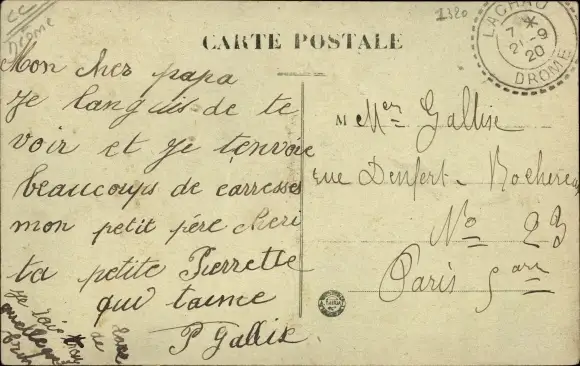 CC
Drôme
1320
CARTE POSTALE
LACHAU
7 *
21-9
20
DROME
Mon cher papa
Je languis de te
voir et je t'envoie
beaucoups de carresses
mon petit père cheri
ta petite Pierrette
qui taime
P Gallix
M Mer Gallix
rue Denfert-Rochereau
No 23
Paris 5 arr